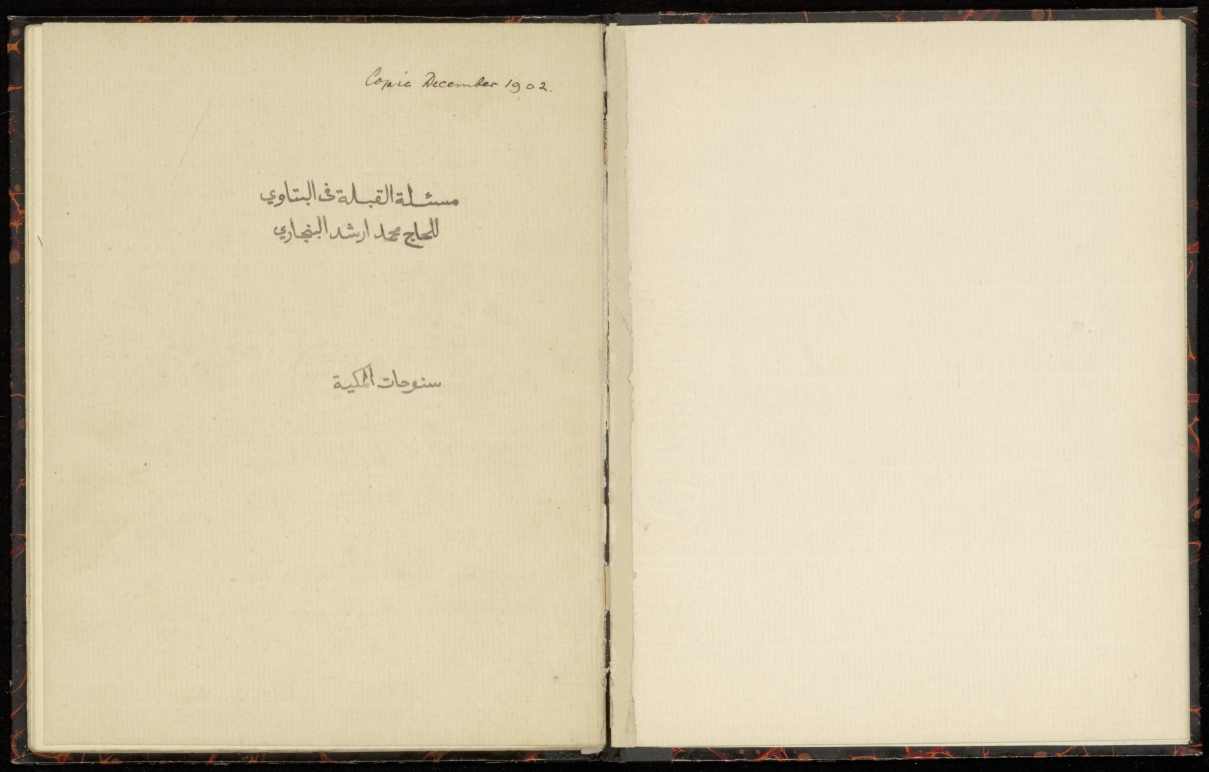 Copie December 1902.
مسئلة القبلة فى البتاوي
للحاج محمد ارشد البنجاري
سنوحات المكية